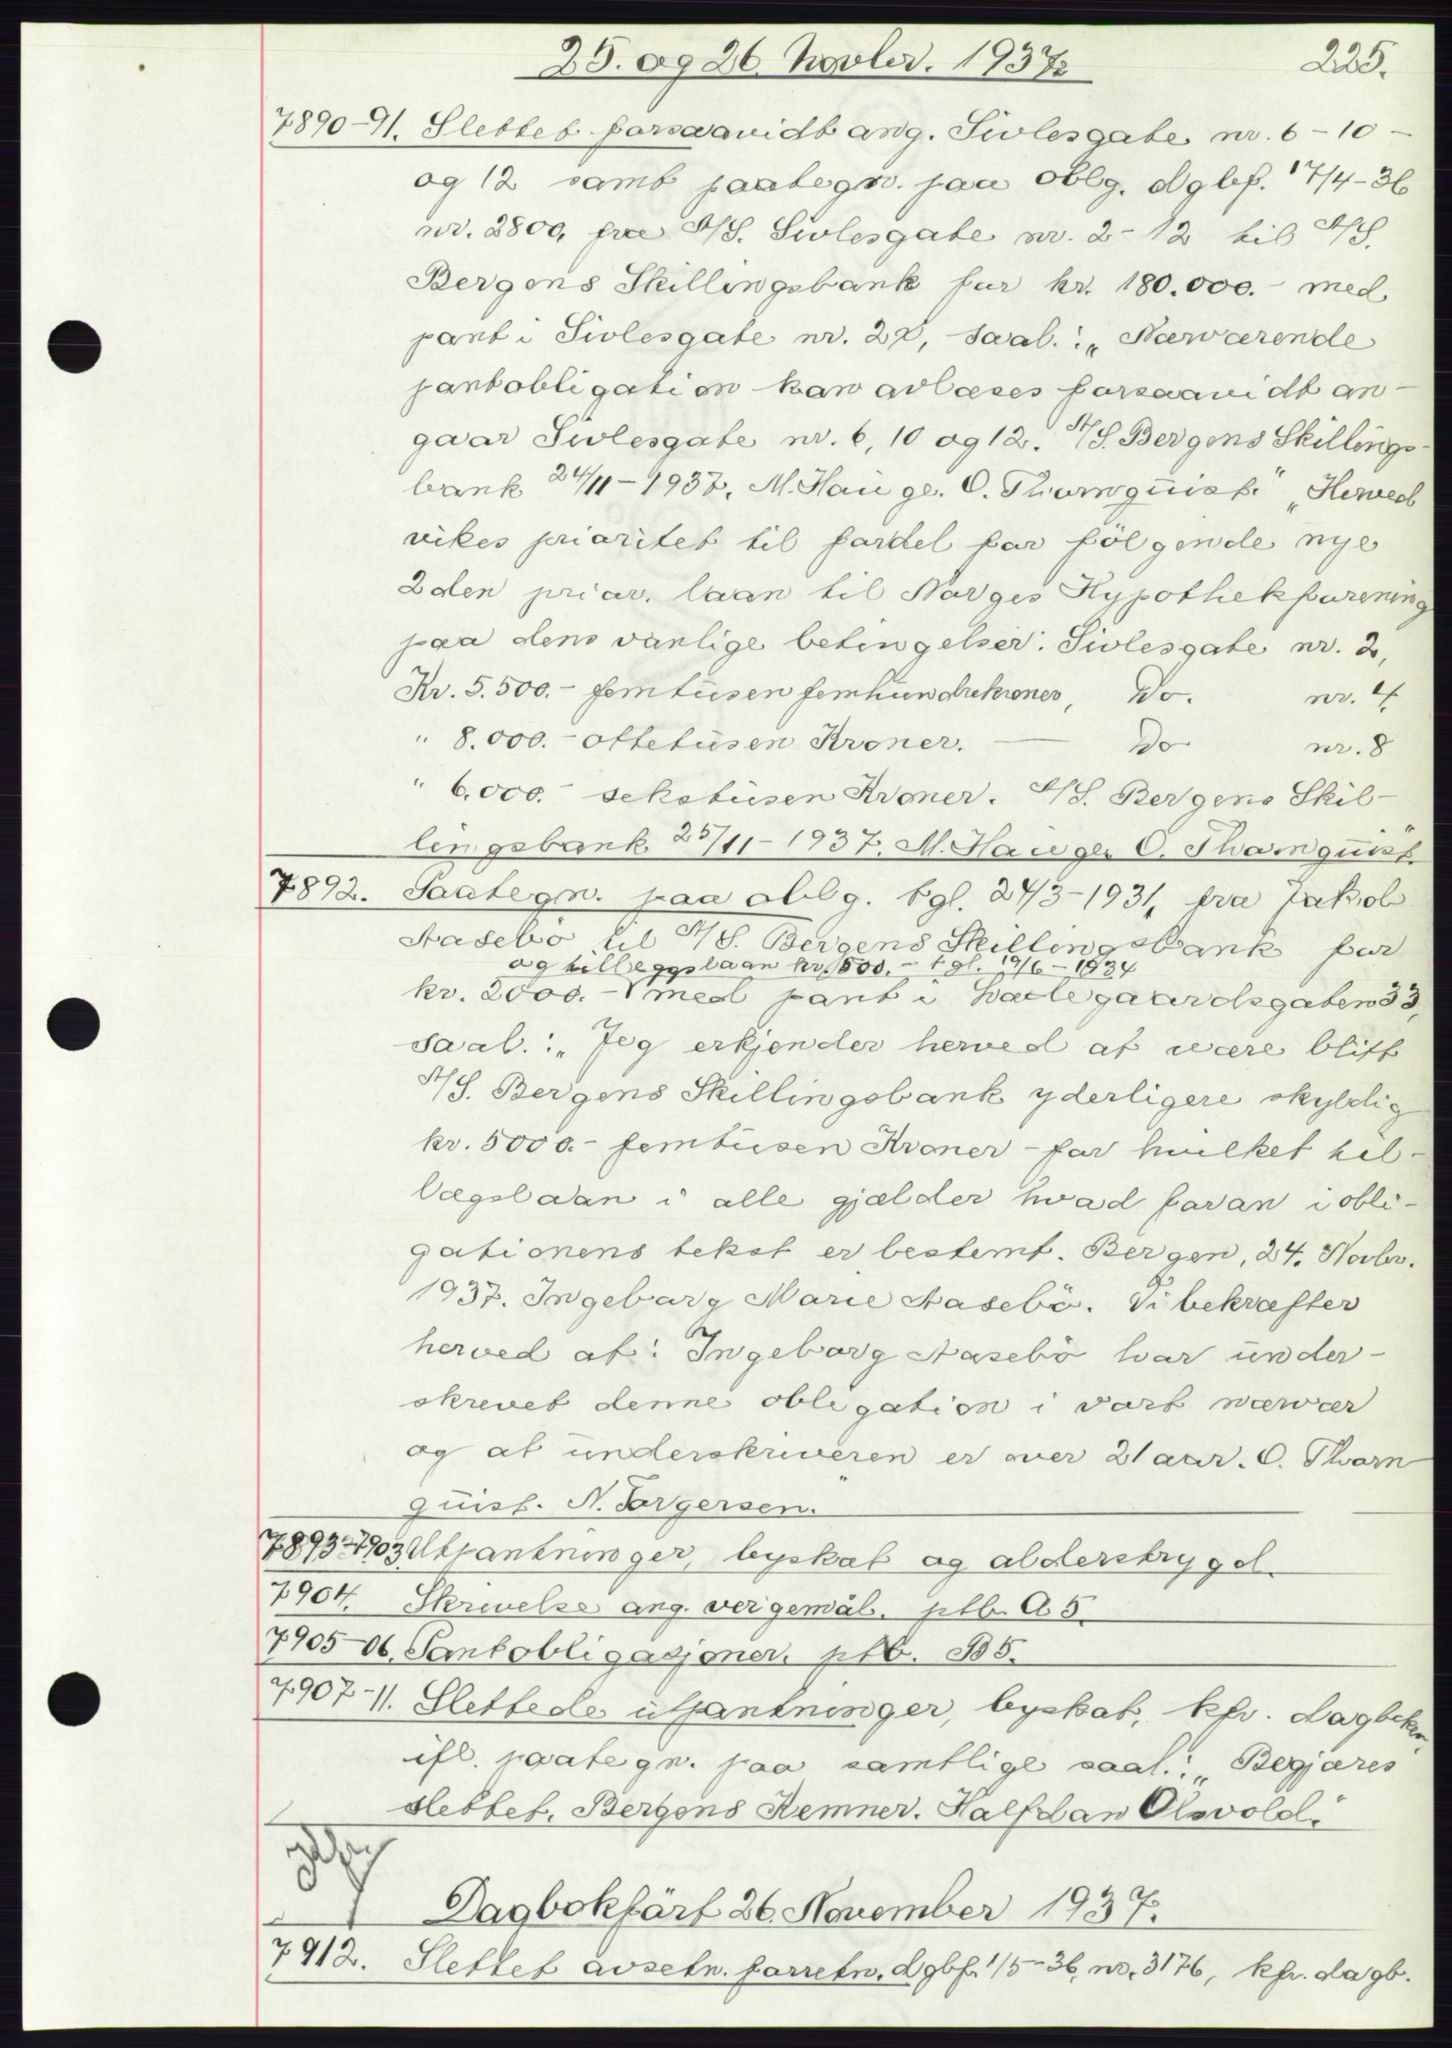 25. og 26. Novbr. 1937. 225.
7890-91. Slettet forsaavidt ang. Sivlesgate nr. 6 - 10 -
og 12 samt paategn. paa oblg. dgbf. 17/4-36
nr. 2800, fra A/S. Sivlesgate nr. 2-12 til A/S.
Bergens Skillingsbank for kr. 180.000.- med
pant i Sivlesgate nr. 2, saal.: „Nærværende
pantobligation kan avlæses forsaavidt an-
gaar Sivlesgate nr. 6, 10 og 12. A/S. Bergens Skillings-
bank 24/11-1937, M. Hauge. O. Thornquist." „Herved
vikes prioritet til fordel for følgende nye
2den prior. laan til Norges Hypothekforening
paa dens vanlige betingelser: Sivlesgate nr. 2,
Kr. 5.500.- femtusen femhundrekroner, Do. nr. 4,
" 8.000.- ottetusen Kroner. — Do nr. 8
" 6.000.- sekstusen Kroner. A/S. Bergens Skil-
lingsbank 25/11-1937. M. Hauge. O. Thornquist."
7892. Paategn. paa oblg. tgl. 24/3-1931, fra Jakob
Aasebö til A/S. Bergens Skillingsbank for
og tilleggslaan kr. 500.- tgl. 19/6-1934
kr. 2000.- V med pant i Ladegaardsgaten 33,
saal.: „Jeg erkjender herved at være blitt
A/S. Bergens Skillingsbank yderligere skyldig
kr. 5000.- femtusen Kroner - for hvilket til-
lægslaan i alle gjælder hvad foran i obli-
gationens tekst er bestemt. Bergen, 24. Novbr.
1937. Ingeborg Marie Aasebö. Vi bekræfter
herved at: Ingeborg Aasebö har under-
skrevet denne obligation i vart nærvær
og at underskriveren er over 21 aar. O. Thorn-
quist. N. Torgersen."
7893-7903. Utpantninger, byskat og alderstrygd.
7904. Skrivelse ang. vergemål. ptb. A 5.
7905-06. Pantobligasjoner. ptb. B5.
7907-11. Slettede utpantninger, byskat, kfr. dagbøker,
ifl. paategn. paa samtlige saal.: „Begjæres
slettet. Bergens Kemner. Halfdan Olsvold."
Dagbokført 26. November 1937.
7912. Slettet avsetn. forretn. dgbf. 1/5-36, nr. 3176, kfr. dagb.